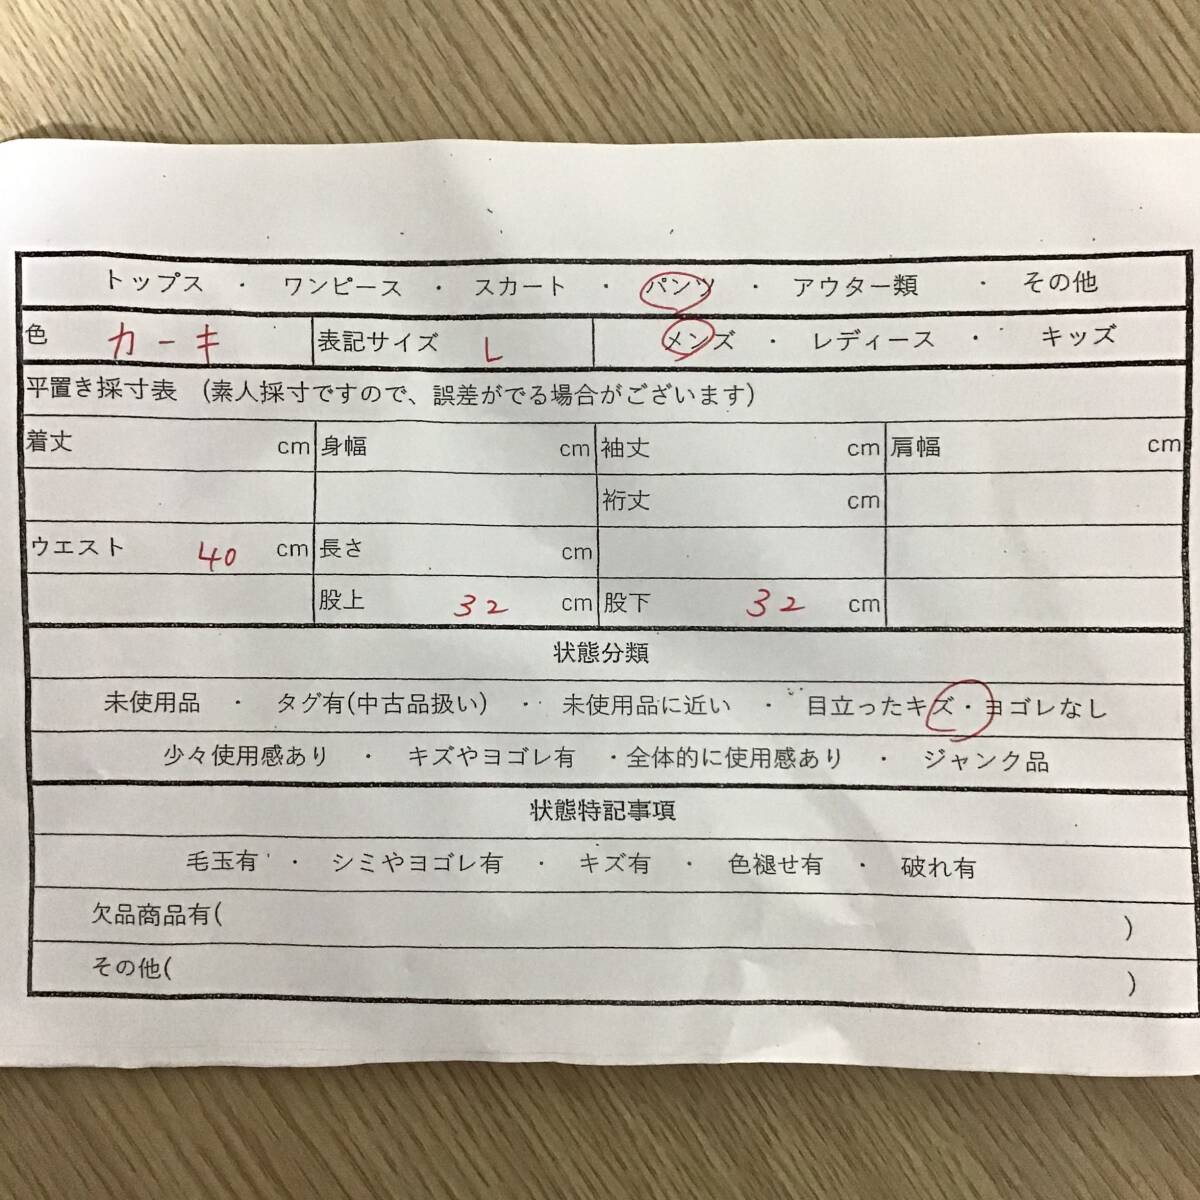 トップス ・ ワンピース ・ スカート ・ パンツ ・ アウター類 ・ その他
色 カーキ 表記サイズ L メンズ ・ レディース ・ キッズ
平置き採寸表 (素人採寸ですので、誤差がでる場合がございます)
着丈 cm 身幅 cm 袖丈 cm 肩幅 cm
裄丈 cm
ウエスト 40 cm 長さ cm
股上 32 cm 股下 32 cm
状態分類
未使用品 ・ タグ有(中古品扱い) ・ 未使用品に近い ・ 目立ったキズ・ヨゴレなし
少々使用感あり ・ キズやヨゴレ有 ・全体的に使用感あり ・ ジャンク品
状態特記事項
毛玉有 ・ シミやヨゴレ有 ・ キズ有 ・ 色褪せ有 ・ 破れ有
欠品商品有( )
その他( )